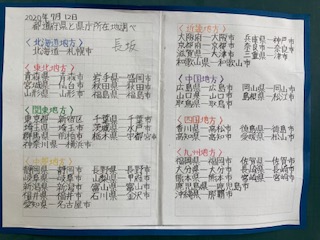 2020年7月12日
都道府県と県庁所在地調べ
長坂
〈北海道地方〉
北海道―札幌市
〈東北地方〉
青森県 青森市 岩手県 盛岡市
宮城県 仙台市 秋田県 秋田市
山形県 山形市 福島県 福島市
〈関東地方〉
東京都 新宿区 千葉県 千葉市
埼玉県 茨城県 水戸市
栃木県 宇都宮市
神奈川県―横浜市
〈中部地方〉
静岡県 静岡市 長野県 長野市
岐阜県 岐阜市 山梨県 甲府市
新潟県 新潟市 富山県 富山市
石川県 金沢市
愛知県 名古屋市
〈近畿地方〉
大阪府―大阪市 兵庫県―神戸市
京都府―京都市 奈良県―奈良市
滋賀県―大津市 三重県―津市
和歌山県―和歌山市
〈中国地方〉
広島県 広島市 岡山県―岡山市
山口県 山口市 島根県―松江市
鳥取県 鳥取市
〈四国地方〉
香川県 高松市 徳島県 徳島市
高知県 高知市 愛媛県 松山市
〈九州地方〉
福岡県 福岡市 佐賀県 佐賀市
大分県 大分市 長崎県 長崎市
熊本県 熊本市 宮崎県 宮崎市
鹿児島県―鹿児島市
沖縄県 那覇市